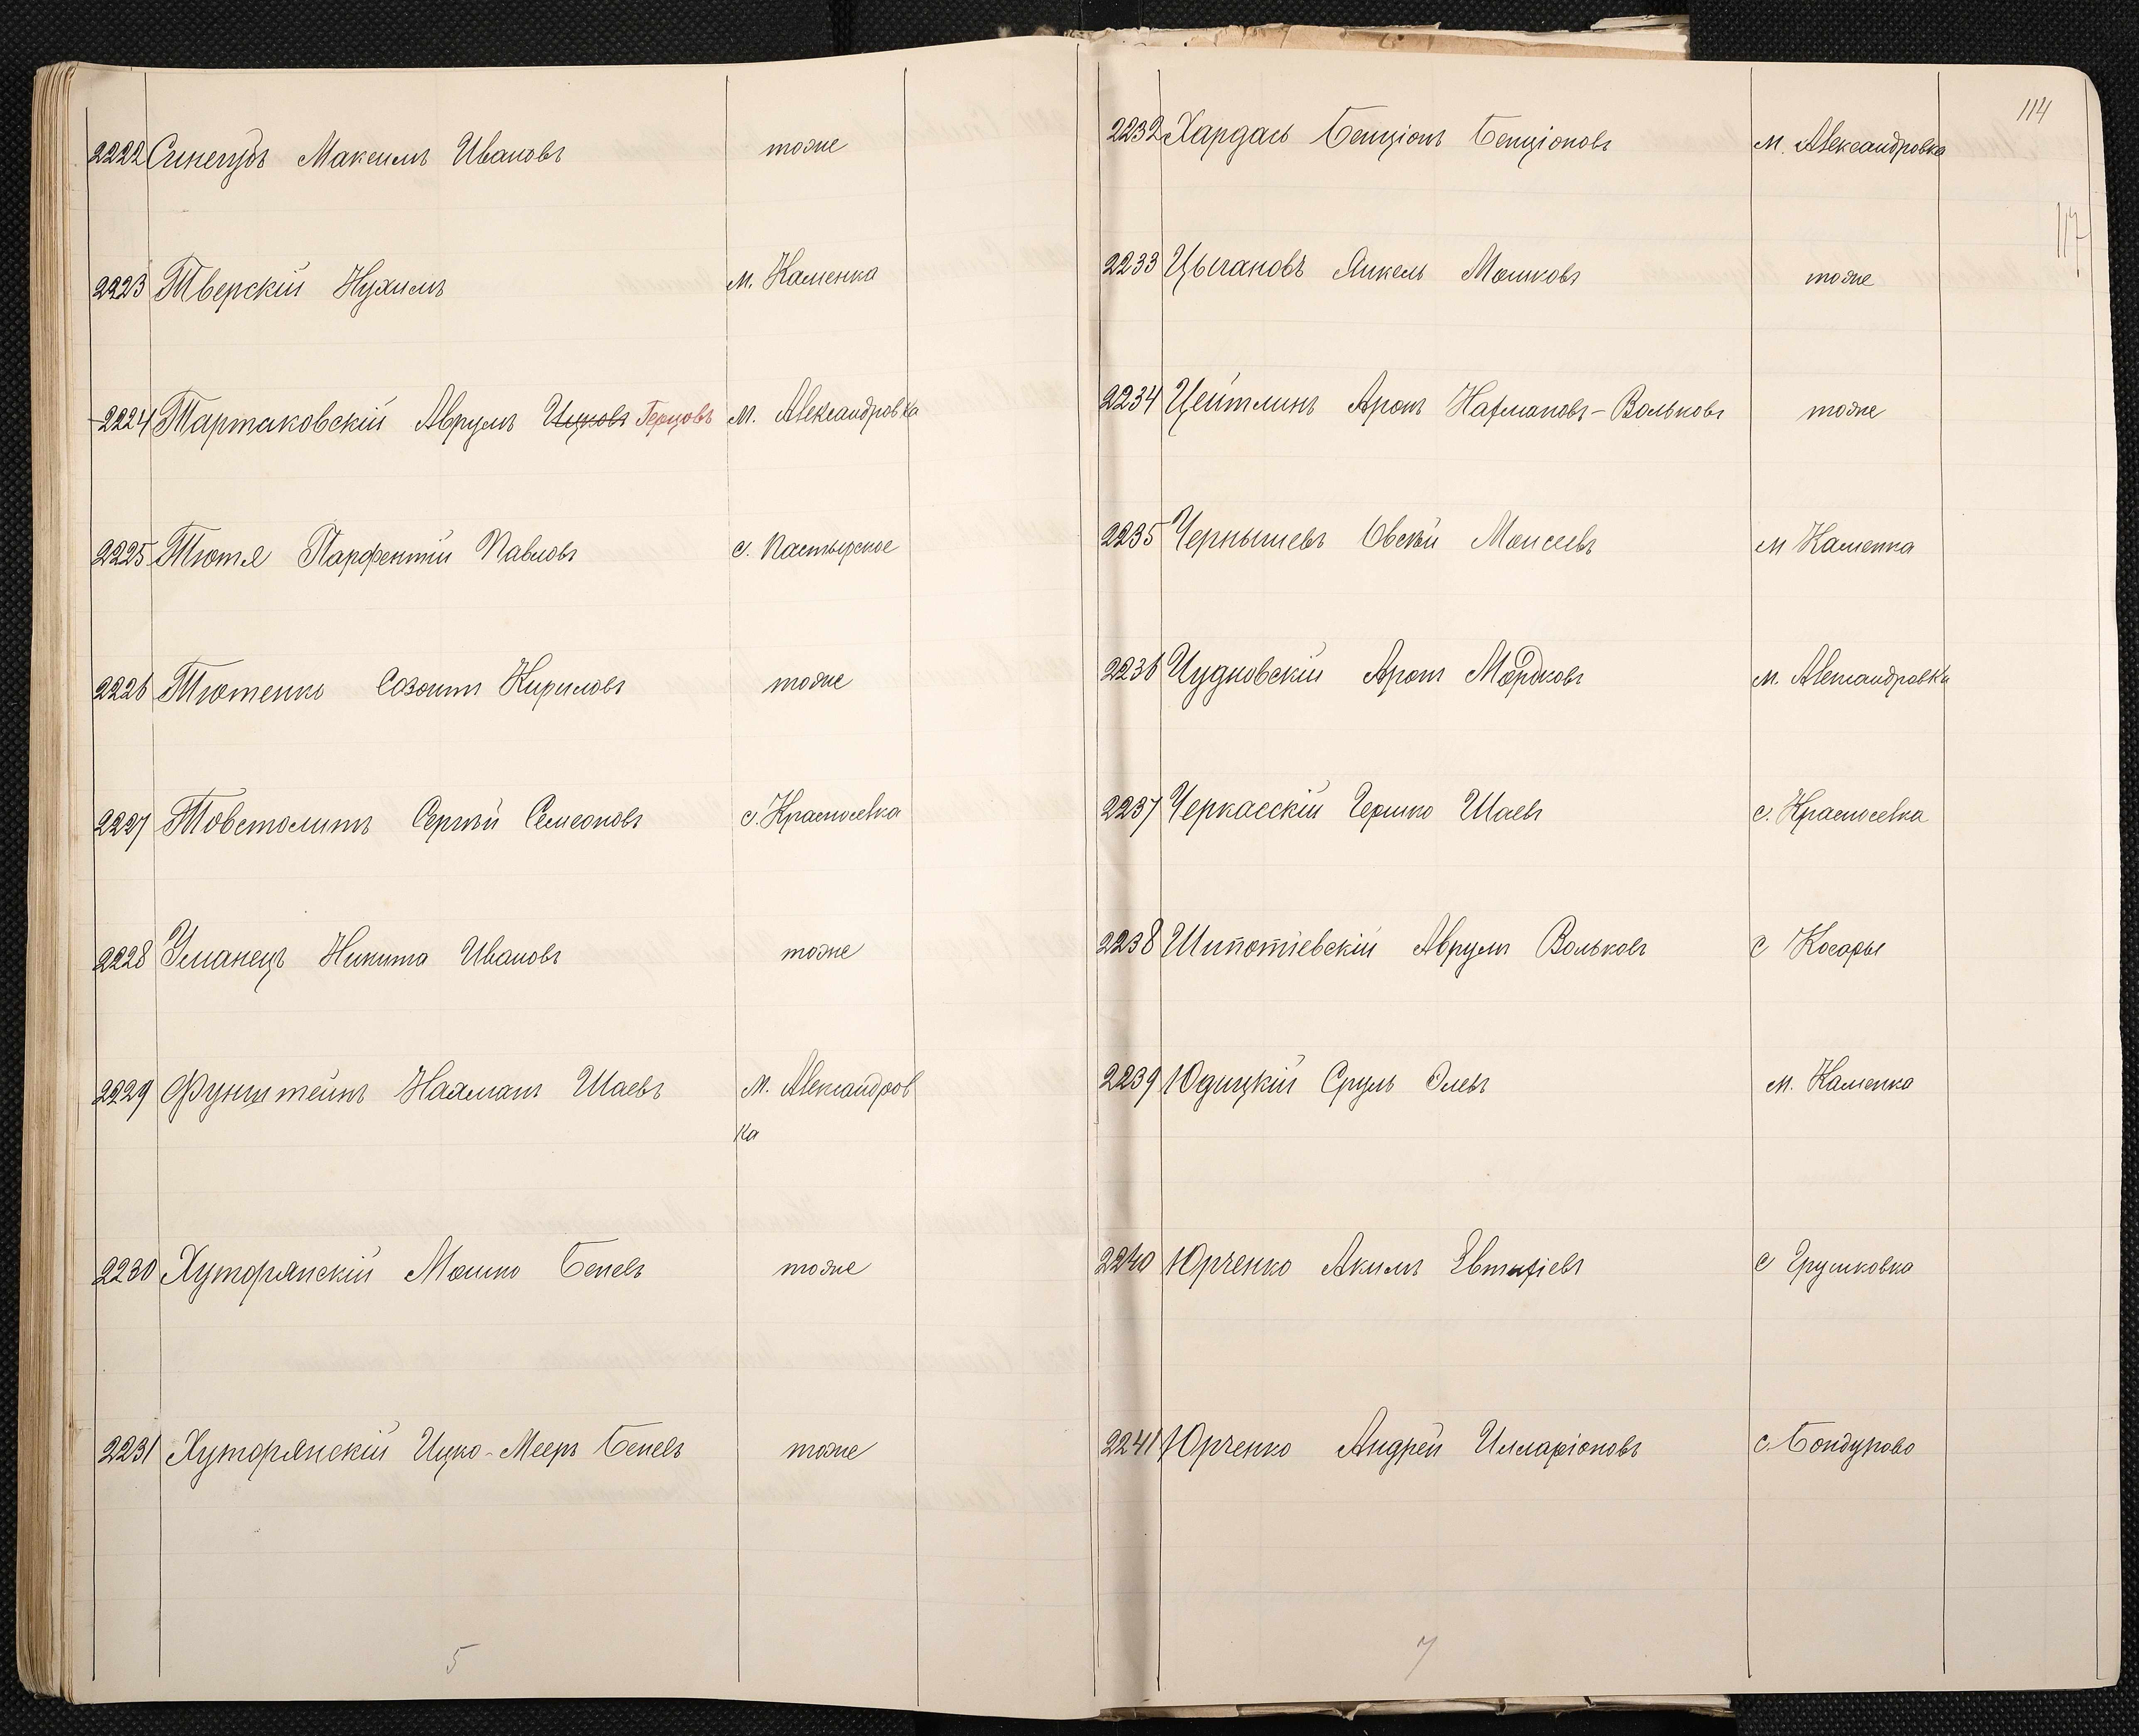 2222 Синегубъ Максимъ Ивановъ тоже
2223 Тверскій Нухимъ м. Каменка
2224 Тартаковскій Аврумъ Ицковъ Герцовъ м. Александровка
2225 Тютя Парфентій Павловъ с. Пастырское
2226 Тютенко Созонтъ Кириловъ тоже
2227 Товстолитъ Сергѣй Семеоновъ с. Красноселка
2228 Уманецъ Никита Ивановъ тоже
2229 Фунштейнъ Нахманъ Шаевъ м. Александров
ка
2230 Хуторянскій Мошко Беневъ тоже
2231 Хуторянскій Ицко-Мееръ Беневъ тоже
5
114
117
2232 Хардасъ Бенціонъ Бенціоновъ м. Александровка
2233 Цыгановъ Янкель Мошковъ тоже
2234 Цейтлинъ Аронъ Нахмановъ-Вольковъ тоже
2235 Чернышевъ Овсѣй Моисеевъ м Каменка
2236 Чудновскій Аронъ Мордковъ м. Александровка
2237 Черкасскій Гершко Шаевъ с. Красноселка
2238 Шипотіевскій Аврумъ Вольковъ с Косары
2239 Юдицкій Сруль Элевъ м. Каменка
2240 Юрченко Акимъ Евтихіевъ с Грушковка
2241 Юрченко Андрей Илларіоновъ с. Бондурово
7